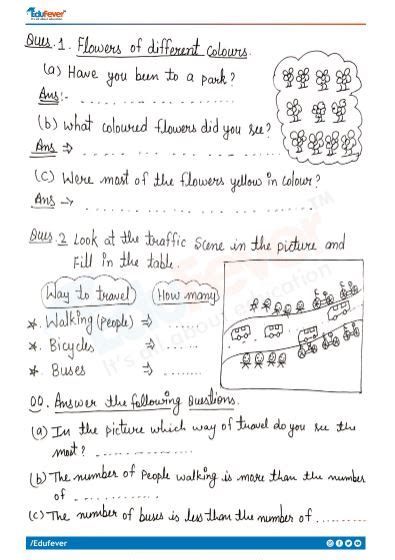 EduFever
It's all about education
Ques. 1. Flowers of different colours.
(a) Have you been to a park?
Ans:- . . . . . . . . . . . . . . . .
(b) What coloured flowers did you see?
Ans ⇒ . . . . . . . . . . . . . . . .
(c) Were most of the flowers yellow in colour?
Ans → . . . . . . . . . . . . . . . .
TM
EduFever
It's all about education
Ques. 2 Look at the traffic scene in the picture and
Fill in the table.
Way to travel How many
*. Walking (people) ⇒ . . . . .
*. Bicycles ⇒ . . . . . .
* Buses ⇒ . . . . . . . .
QQ. Answer the following questions.
(a) In the picture which way of travel do you see the
most? . . . . . . . . . . . . . .
(b) The number of people walking is more than the number
of . . . . . . . . . . . .
(c) The number of buses is less than the number of . . . . . . . . . .
/Edufever